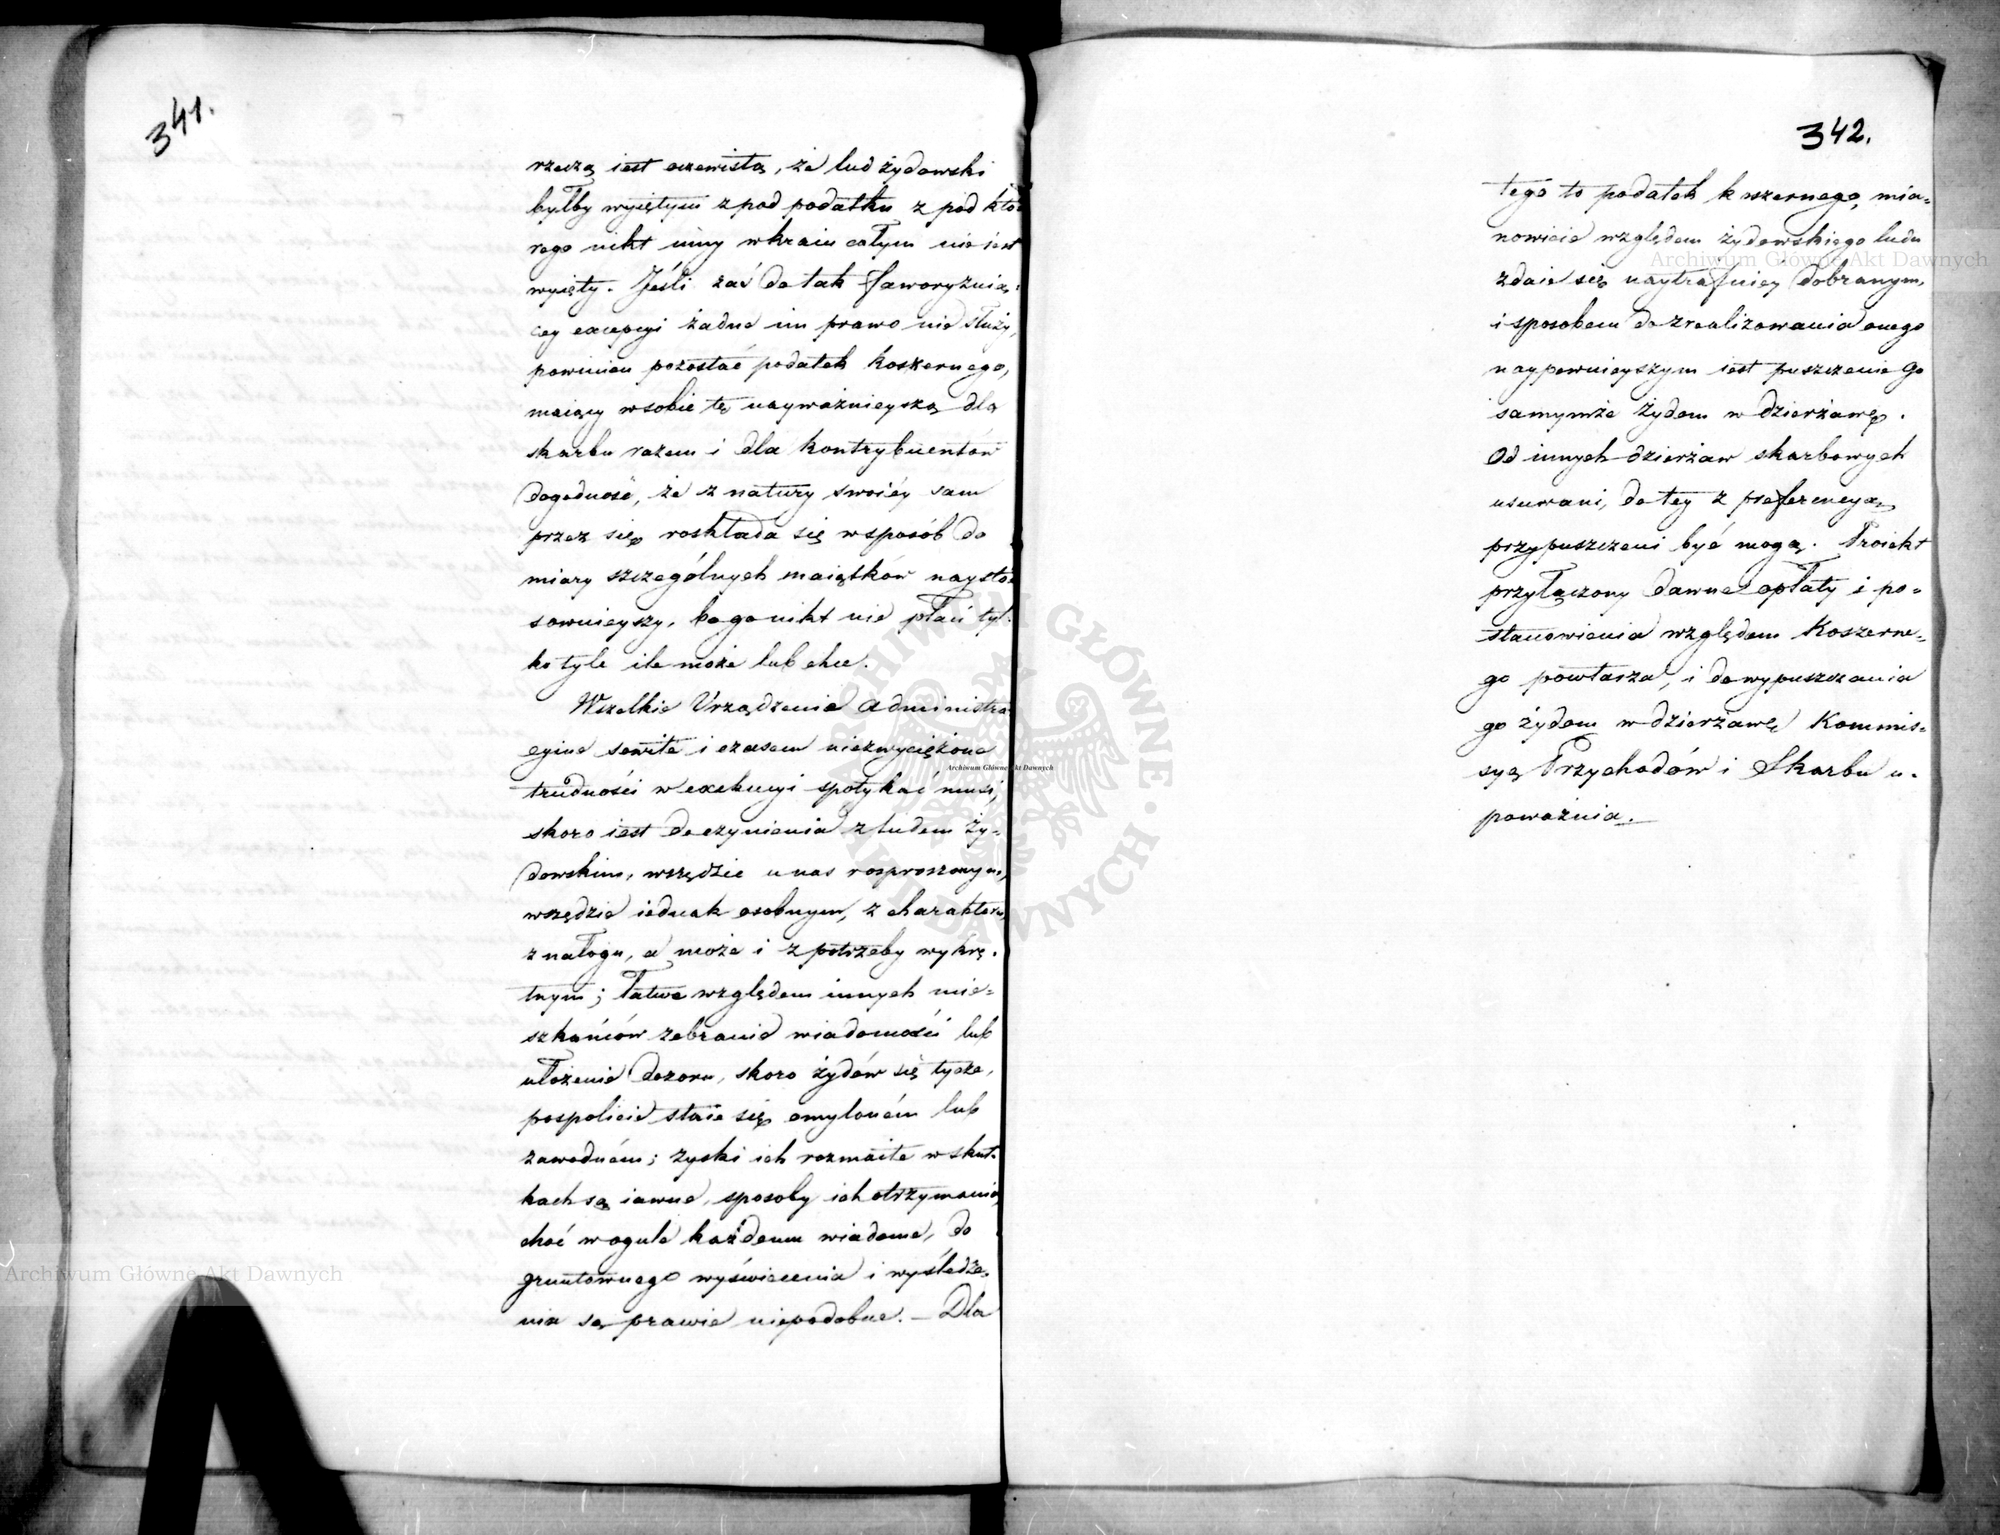 341.
rzeczą iest oczewistą, że lud żydowski
byłby wyiętym z pod podatku z pod któ-
rego nikt inny w kraiu całym nie iest
wyięty. Jeśli zaś do tak faworyzuią-
cey excepcyi żadne im prawo nie służy,
powinien pozostać podatek koszernego,
maiący w sobie tę nayważnieyszą dla
skarbu razem i dla kontrybuentów
dogodność, że z natury swoiéy sam
przez się rozkłada się w sposób do
miary szczególnych maiątków naysto-
sownieyszy, bo go nikt nie płaci tyl-
ko tyle ile może lub chce.
Wszelkie Urządzenie administra-
cyine sowite i czasem niezwyciężone
trudności w exekucyi spotykać musi,
skoro iest do czynienia z ludem ży-
dowskim, wszędzie u nas rosproszonym,
wszędzie iednak osobnym, z charakteru,
z nałogu, a może i z potrzeby wykrę-
tnym; łatwe względem innych mie-
szkańców zebranie wiadomości lub
ułożenie dozoru, skoro żydów się tycze,
pospolicie staie się omylném lub
zawodném; zyski ich rozmaite w skut-
kach są iawne, sposoby ich otrzymania,
choć w ogule każdemu wiadome, do
gruntownego wyświecenia i wyśledze-
nia są prawie niepodobne. — Dla
342.
tego to podatek koszernego, mia-
nowicie względem żydowskiego ludu
zdaie się naytrafniey dobranym,
i sposobem do zrealizowania onego
naypewnieyszym iest puszczenie go
samymże żydom w dzierżawę.
Od innych dzierżaw skarbowych
usuwani, do tey z preferencyą
przypuszczeni być mogą. Proiekt
przyłączony dawne opłaty i po-
stanowienia względem Koszerne-
go powtarza, i do wypuszczania
go żydom w dzierżawę Kommis-
syą Przychodów i Skarbu u-
poważnia.
Archiwum Główne Akt Dawnych
Archiwum Główne Akt Dawnych
Archiwum Główne Akt Dawnych
ARCHIWUM GŁÓWNE AKT DAWNYCH